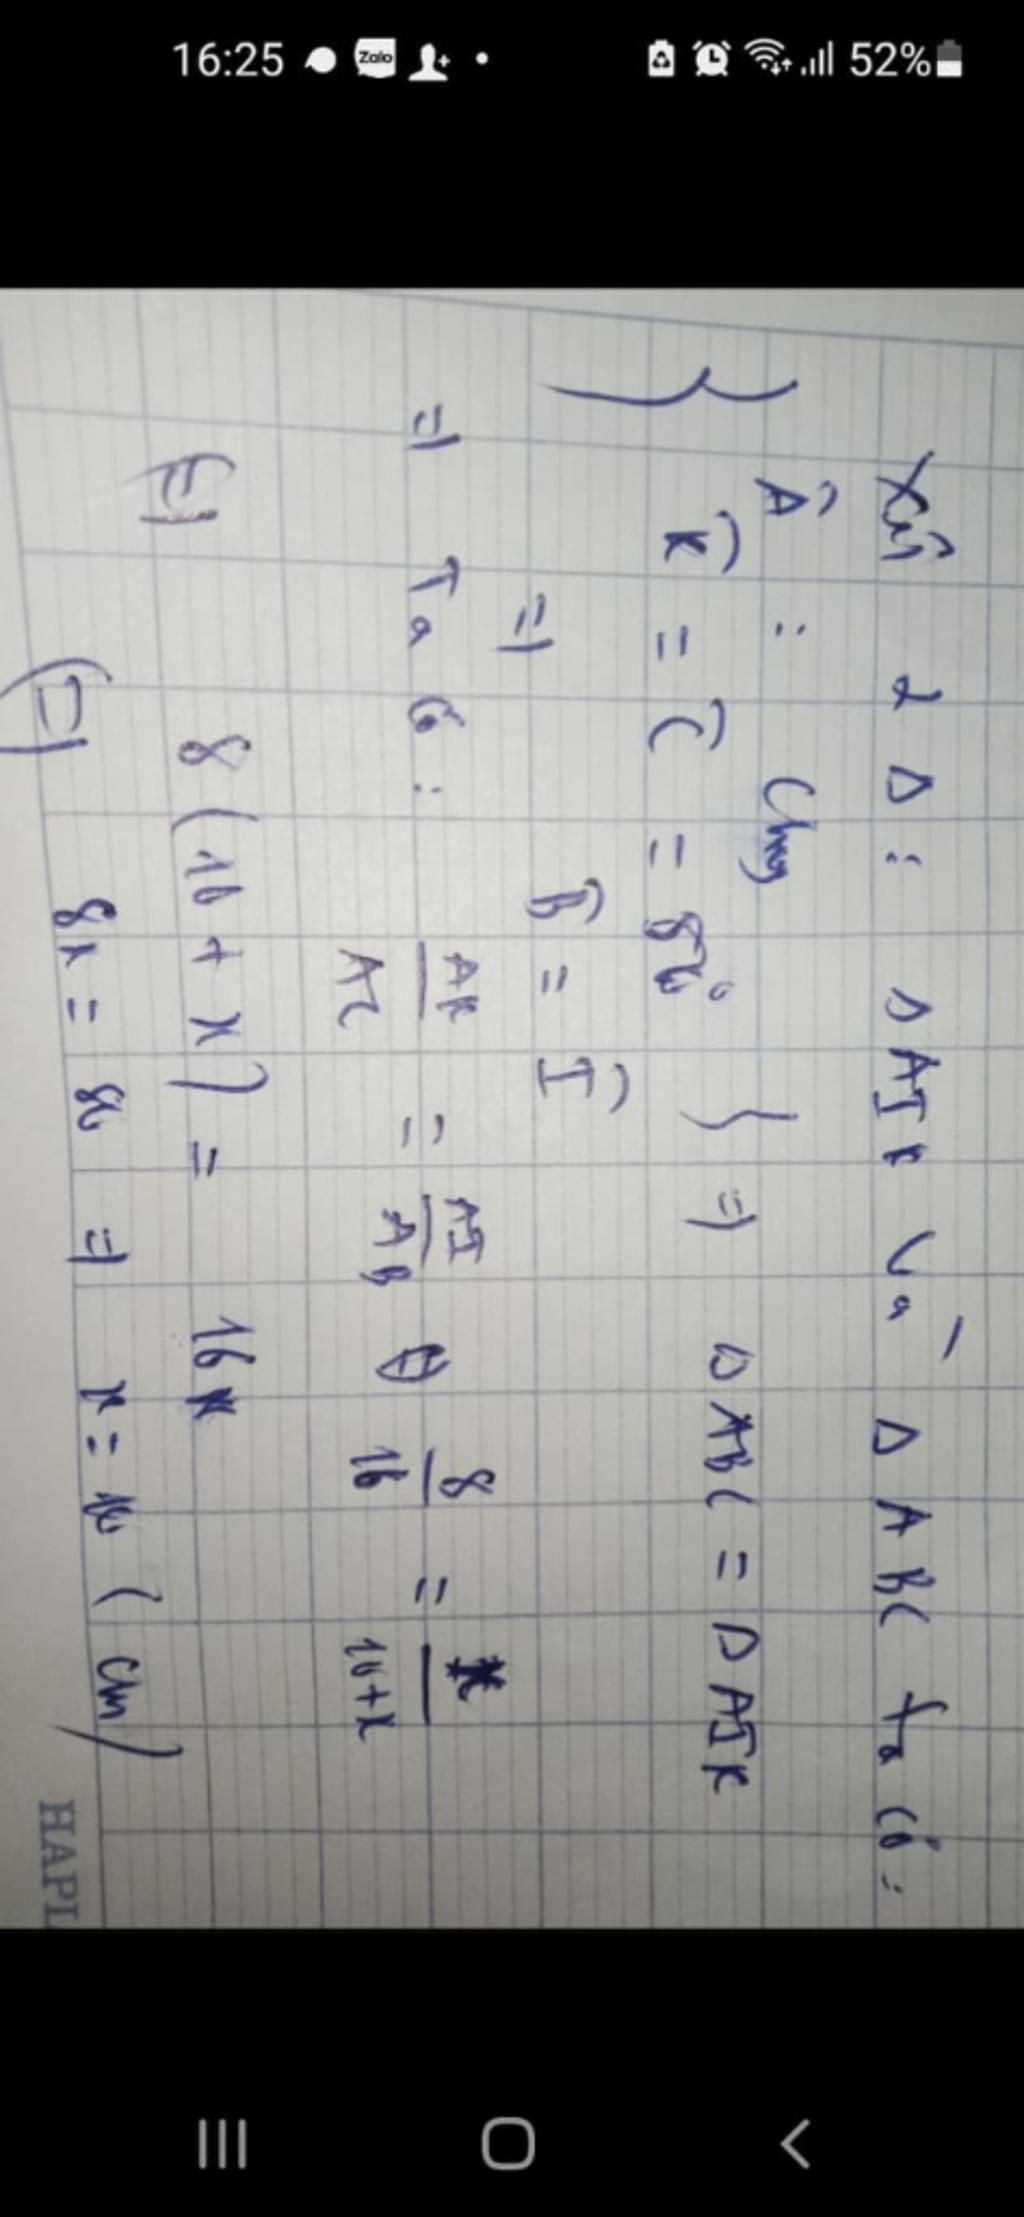 16:25 Zalo 52%
Xét 2 Δ: ΔAIK và ΔABC ta có:
Â: Chung
K̂ = Ĉ = 50° } => ΔABC = ΔAIK
=> B̂ = Î
=> Ta có: AK/AC = AI/AB ⇔ 8/16 = x/10+x
⇔ 8(10+x) = 16x
⇔ 8x = 80 => x = 10 (cm)
HAPL